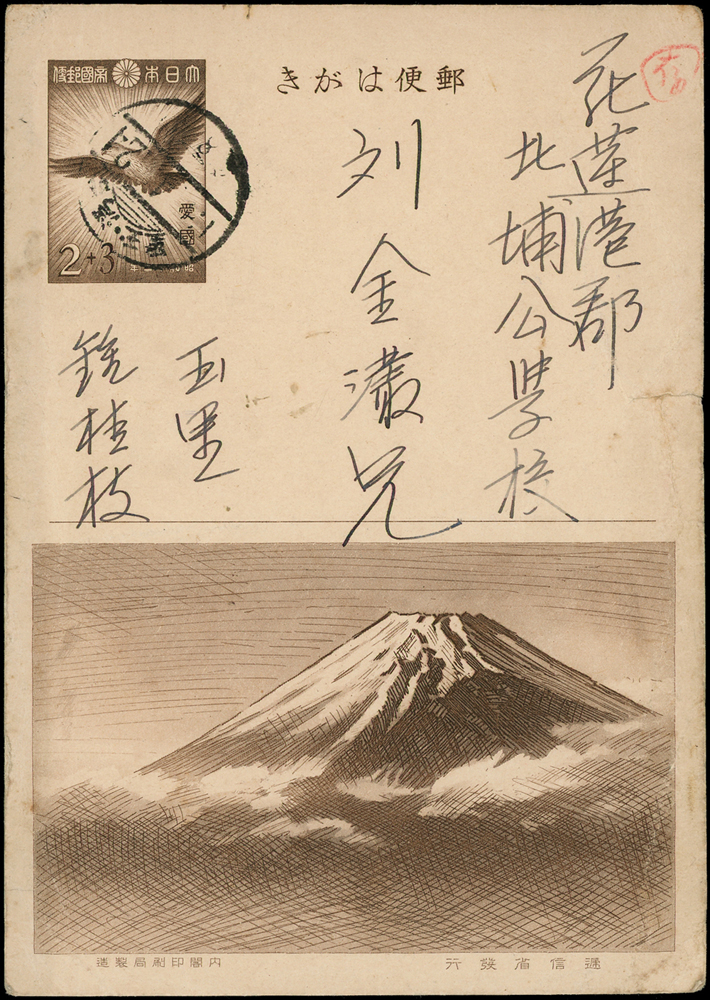 郵便はがき
大日本帝國郵便
愛國
2+3
花蓮港郡
北埔公学校
刘金瀲兄
玉里
鍾桂枝
遞信省發行
内閣印刷局製造